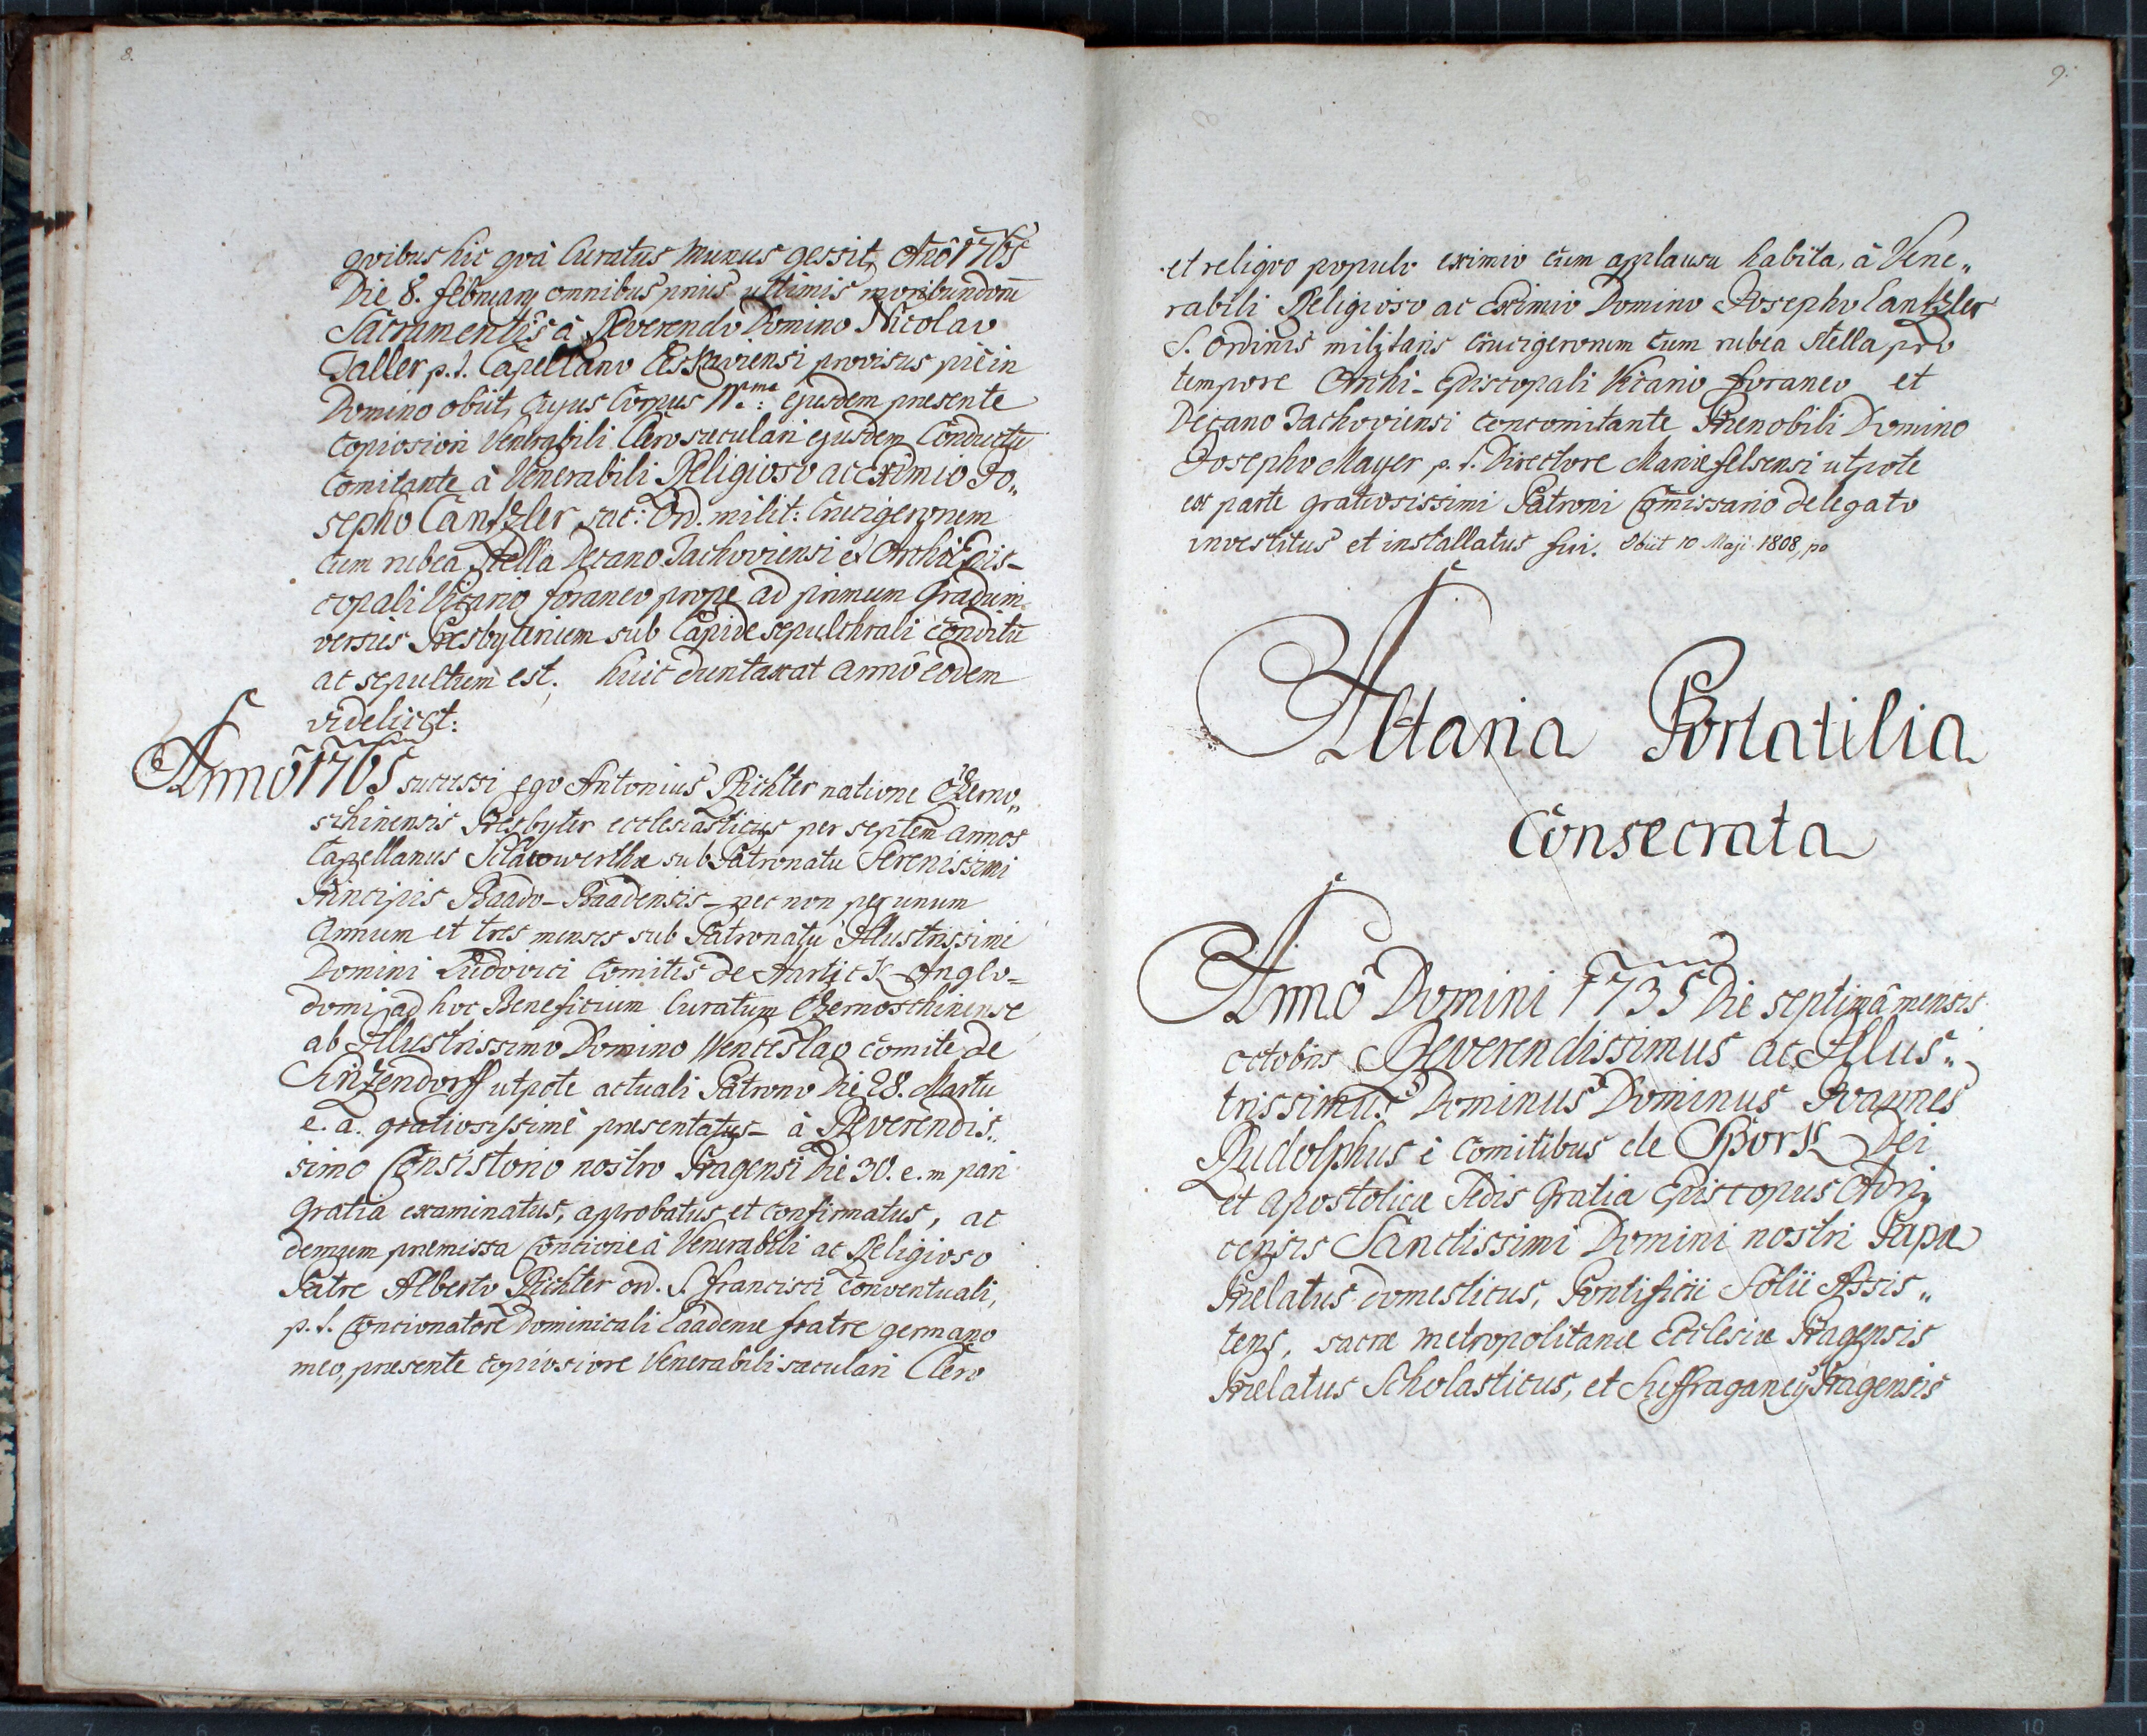 8.
qvibus hic qvà Curatus Munus gessit, Año 1765
Die 8. februarij omnibus prius ultimis moribundorũ
Sacramentis à Reverendo Domino Nicolao
Taller p. t. Capellano provisus piè in
Domino obiit, Cujus Corpus ejusdem presente
copiosiori Venerabili Clero sæculari ejusdem Conductũ
Comitante à Venerabili Religioso ac Eximio Jo„
sepho Cantzler sac: Ord. milit: Crucigerorum
cum rubea Stella Decano Tachoviensi et Archi Epis-
copali Vicario foraneo prope ad primum Gradum
versus Presbyterium sub Lapide sepulchrali conditũ
ac sepultum est. huic duntaxat anno eodem
videlicet:
Anno 1765 successi ego Antonius Richter natione Czerno„
schinensis Presbyter ecclesiasticus per septem annos
Capellanus Schlacowerthæ sub Patronatu Serenissimi
Principis Baado-Baadensis - nec non per unum
annum et tres menses sub Patronatu Illustrissimi
Domini Ludovici Comitis de Hartick - Anglo-
domi, ad hoc Beneficium Curatum Czernoschinense
ab Illustrissimo Domino Wenceslao Comite de
Sinzendorff utpote actuali Patrono Die 28. Martii
e. a. gratiosissimè presentatus - à Reverendis„
simo Consistorio nostro Pragensi Die 30. e. m pari
gratia examinatus, approbatus et confirmatus, ac
demum premissa Concione à Venerabili ac Religioso
Patre Alberto Richter ord. S. francisci Conventuali,
p. t. Concionatore Dominicali Caadenæ fratre germano
meo, presente copiosiore Venerabili sæculari Clero
9.
et reliqvo populo eximio cum applausu habita, à Vene„
rabili Religioso ac Eximio Domino Josepho Cantzler
S. Ordinis militaris Crucigerorum cum rubea Stella pro
tempore Archi-Episcopali Vicario foraneo et
Decano Tachoviensi concomitante Prenobili Domino
Josepho Mayer p. t. Directore Mariæfelsensi utpote
ex parte gratiosissimi Patroni Com̃issario delegato
investitus et installatus fui. Obiit 10 Maji 1808,
Altaria Portatilia
Consecrata
Anno Domini 1735 Die septimâ mensis
octobris Reverendissimus ac Illus„
trissimus Dominus Dominus Joannes
Rudolphus è Comitibus de Spork Dei
et apostolicæ Sedis Gratia Episcopus Adri„
censis Sanctissimi Domini nostri Papæ
Prelatus domesticus, Pontificii Solii Assis„
tens, sacræ metropolitanæ Ecclesiæ Pragensis
Prelatus Scholasticus, et Suffraganeus Pragensis